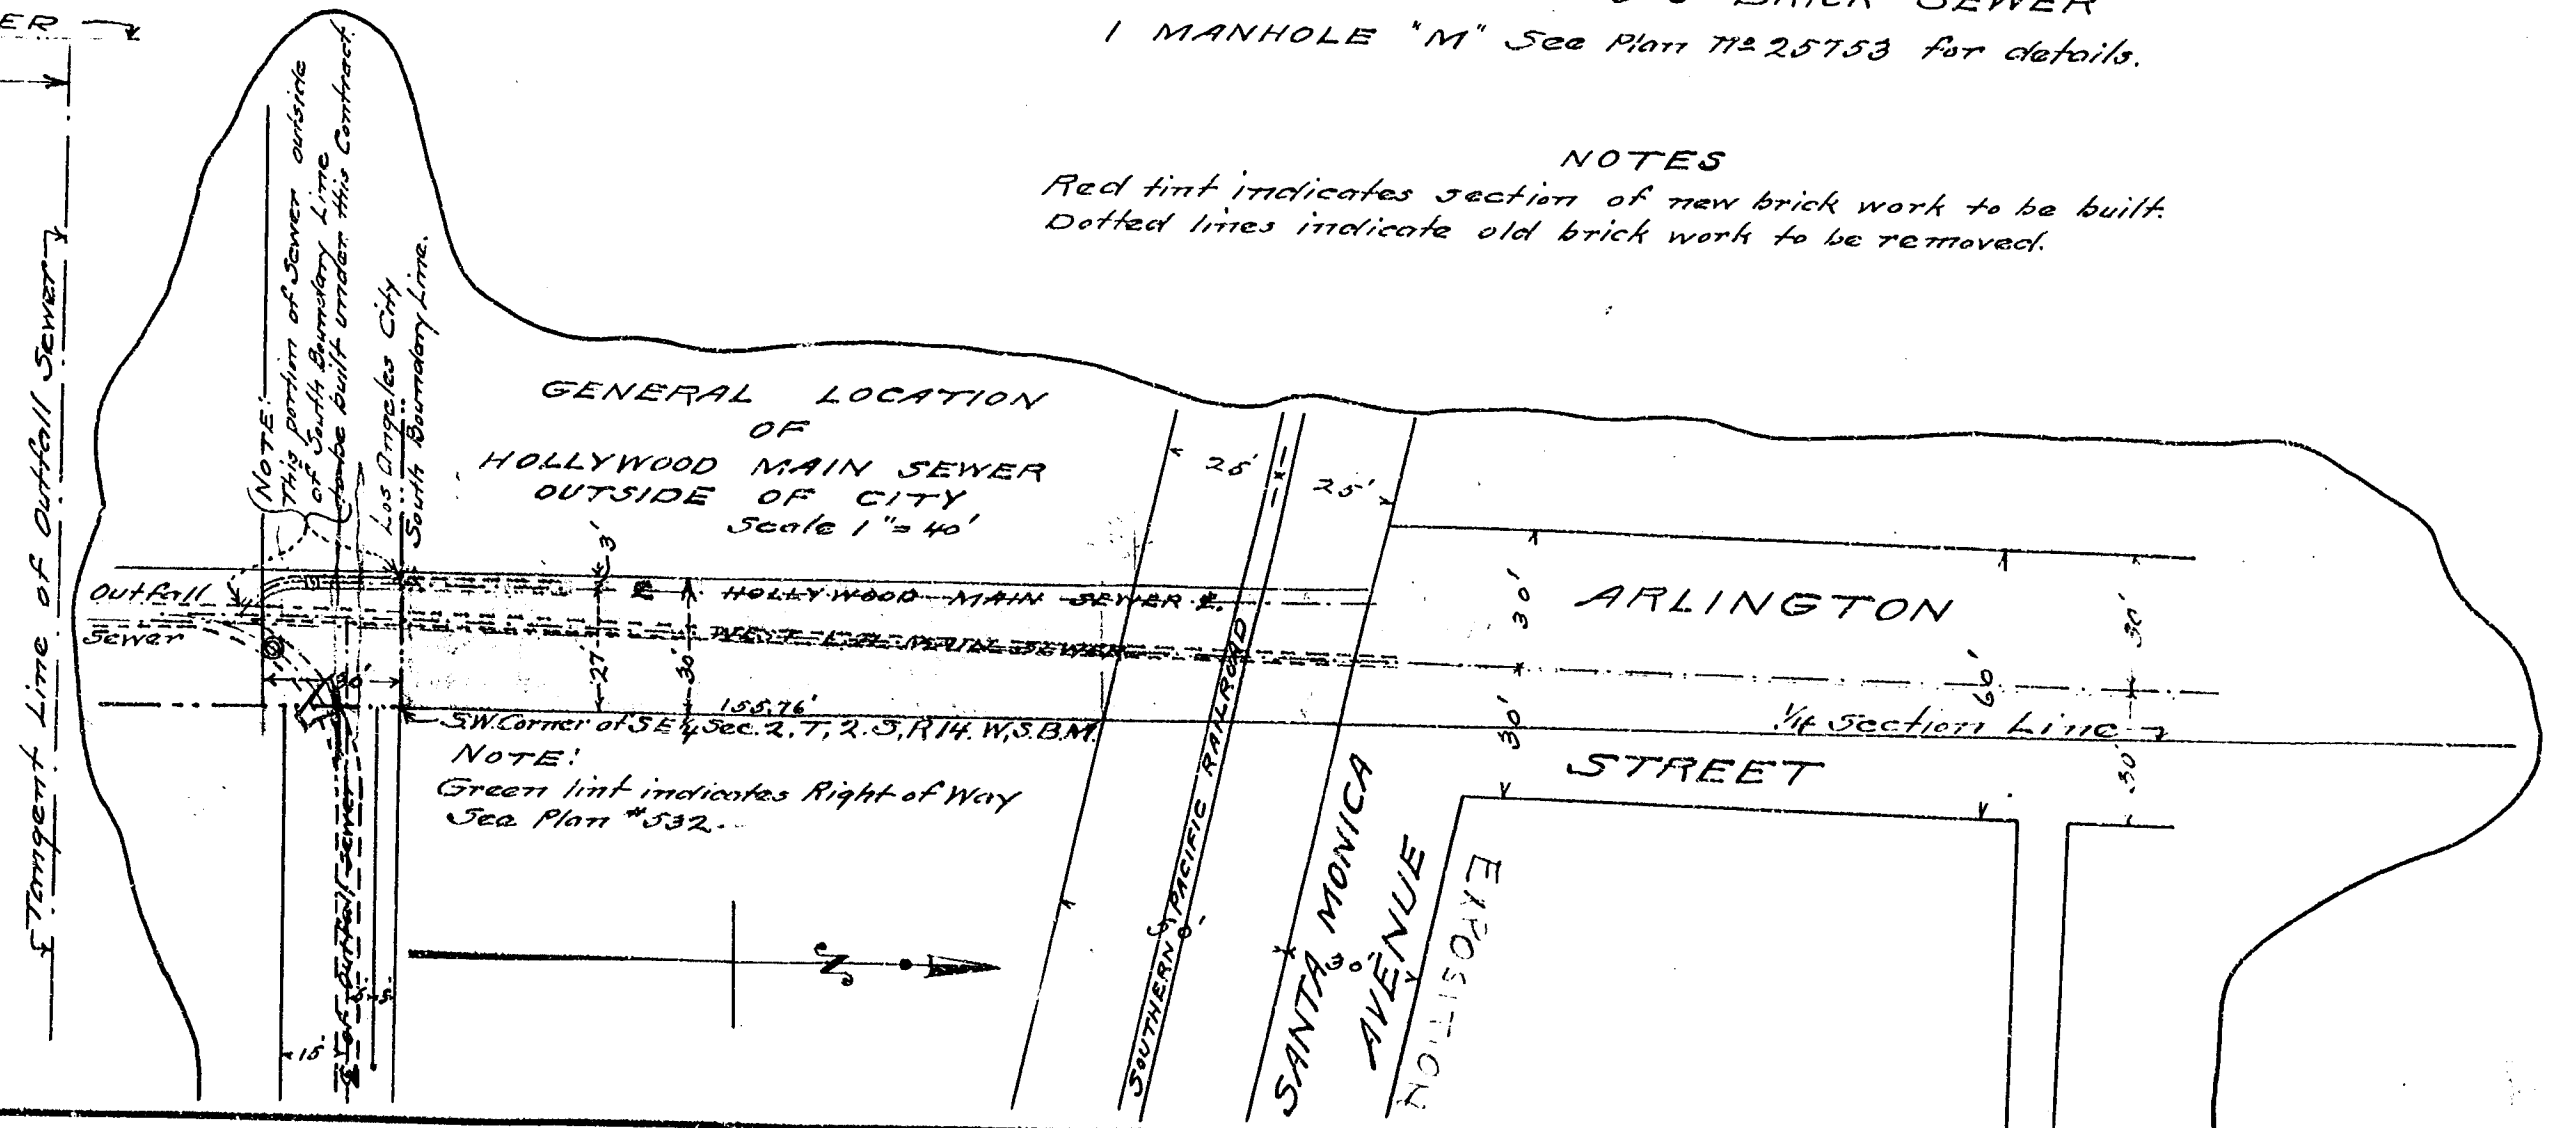 BRICK SEWER
1 MANHOLE "M" See Plan No 25753 for details.
NOTES
Red tint indicates section of new brick work to be built.
Dotted lines indicate old brick work to be removed.
Tangent Line of Outfall Sewer
NOTE:
This portion of Sewer outside
of South Boundary Line
to be built under this Contract.
Los Angeles City
South Boundary Line.
GENERAL LOCATION
OF
HOLLYWOOD MAIN SEWER
OUTSIDE OF CITY
Scale 1"= 40'
25'
25'
3'
Outfall
Sewer
HOLLYWOOD MAIN SEWER
MAIN SEWER
27'
30'
30'
155.76'
S.W. Corner of SE 1/4 Sec. 2, T, 2. S, R 14. W, S.B.M.
NOTE:
Green tint indicates Right of Way
See Plan #532.
of Outfall Sewer
15'
N
SOUTHERN PACIFIC RAILROAD
SANTA MONICA
AVENUE
EXPOSITION
30'
30'
60'
30'
30'
ARLINGTON
1/4 Section Line
STREET